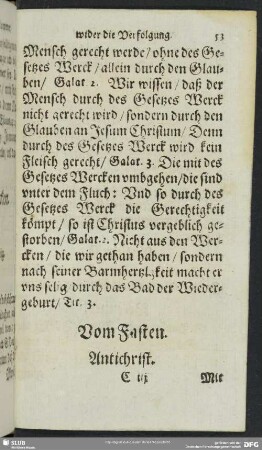 wider die Verfolgung. 53
Mensch gerecht werde / ohne des Ge-
setzes Werck / allein durch den Glau-
ben / Galat 2. Wir wissen / daß der
Mensch durch des Gesetzes Werck
nicht gerecht wird / sondern durch den
Glauben an Jesum Christum / Denn
durch des Gesetzes Werck wird kein
Fleisch gerecht / Galat. 3. Die mit des
Gesetzes Wercken vmbgehen / die sind
vnter dem Fluch: Vnd so durch des
Gesetzes Werck die Gerechtigkeit
kömpt / so ist Christus vergeblich ge-
storben / Galat. 2. Nicht aus den Wer-
cken / die wir gethan haben / sondern
nach seiner Barmhertzigkeit macht er
vns selig durch das Bad der Wieder-
geburt / Tit. 3.
Vom Fasten.
Antichrist.
C iij Mit
SLUB
DFG